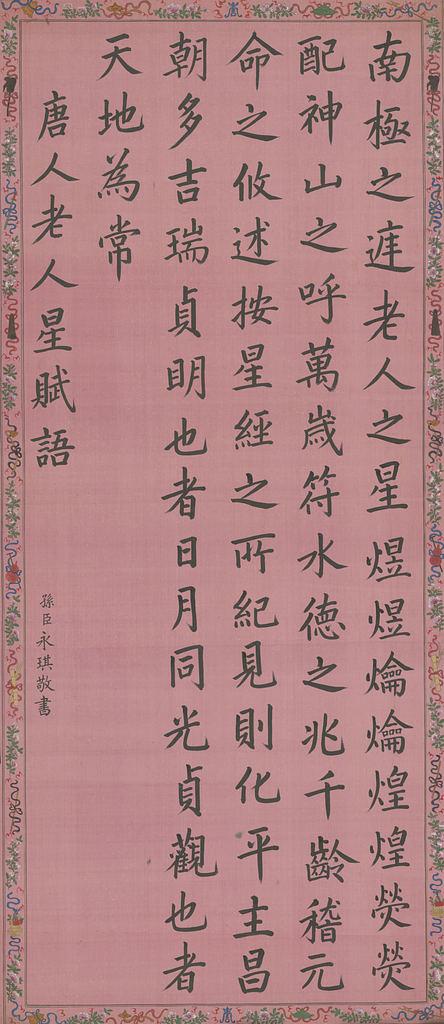 南極之涯老人之星煜煜爚爚煌煌熒熒
配神山之呼萬歲符水德之兆千齡稽元
命之攸述按星經之所紀見則化平主昌
朝多吉瑞貞明也者日月同光貞觀也者
天地為常
唐人老人星賦語
孫臣永琪敬書